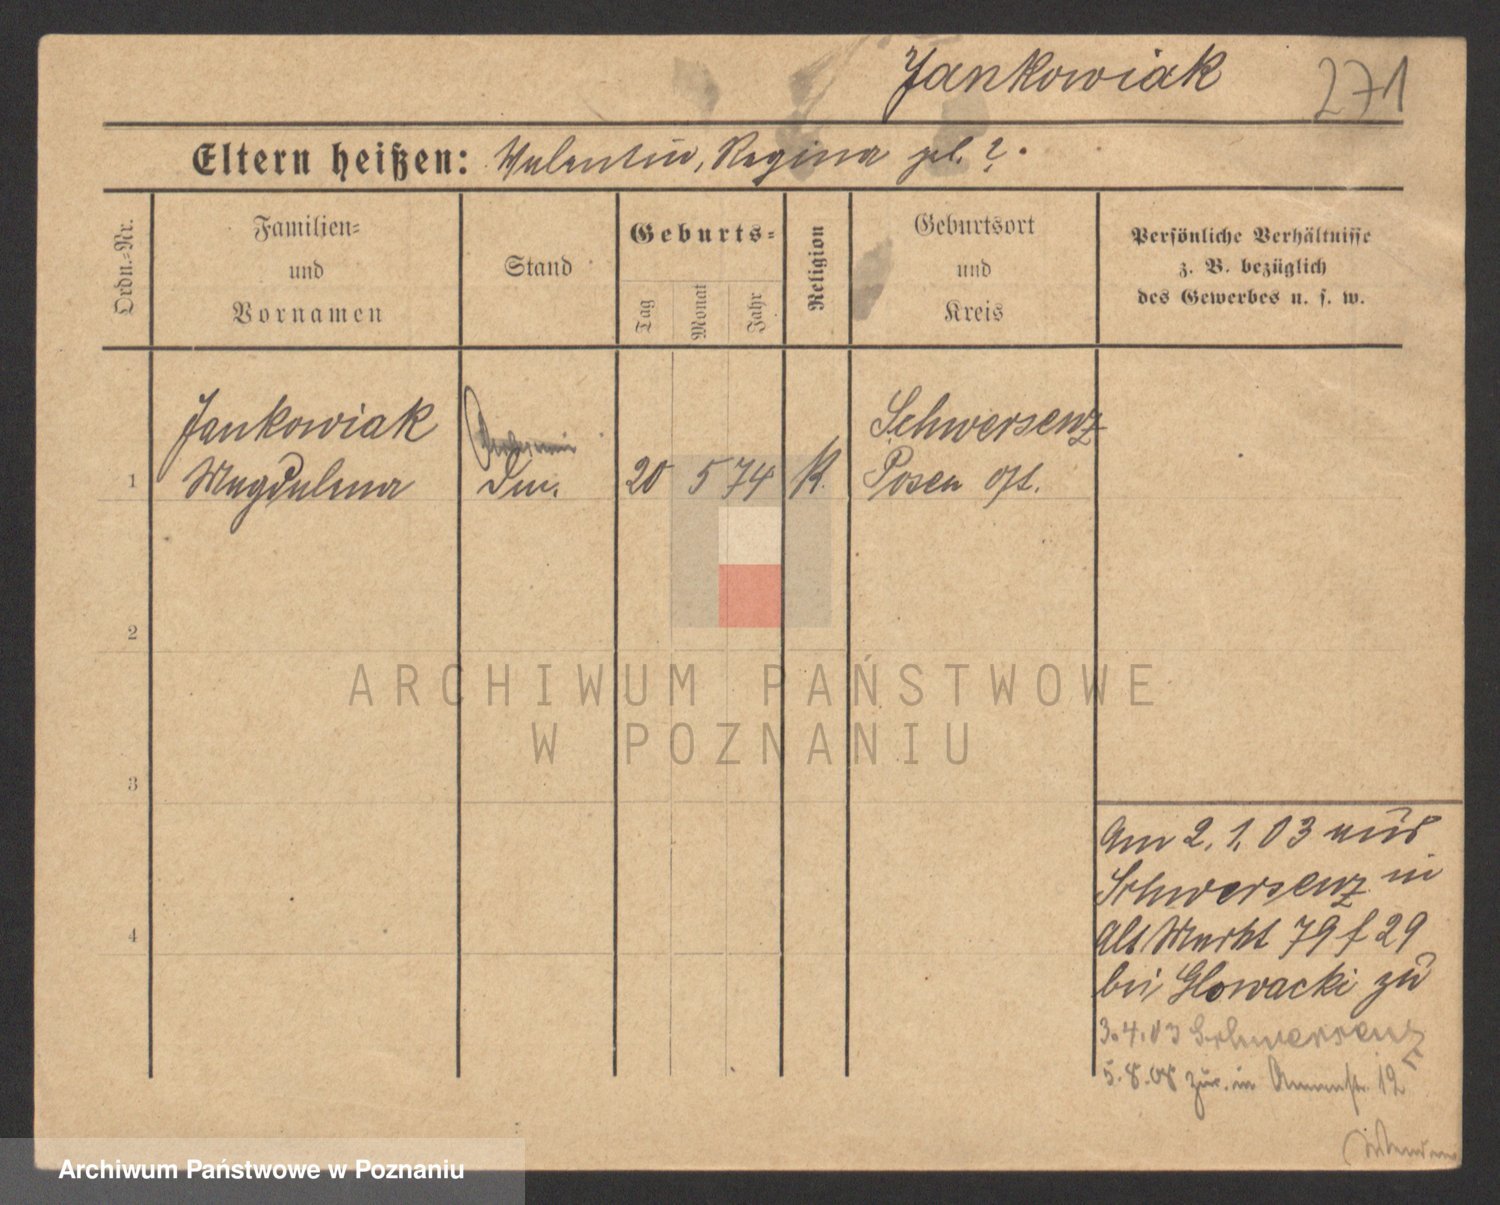 Jankowiak 271
Eltern heißen: Valentin, Regina gb. ?.
Ordn.-Nr.
Familien-
und
Vornamen
Stand
Geburts-
Tag
Monat
Jahr
Religion
Geburtsort
und
Kreis
Persönliche Verhältnisse
z. B. bezüglich
des Gewerbes u. s. w.
Jankowiak
1 Magdalena 20 5 74 K.
Schwersenz
Posen Ost.
2
3
4
Am 2.1.03 aus
Schwersenz in
Alt Markt 79 f 29
bei Glowacki zu
3.4.03 Schwersenz
5.8.08 zur. in 12
ARCHIWUM PAŃSTWOWE
W POZNANIU
Archiwum Państwowe w Poznaniu